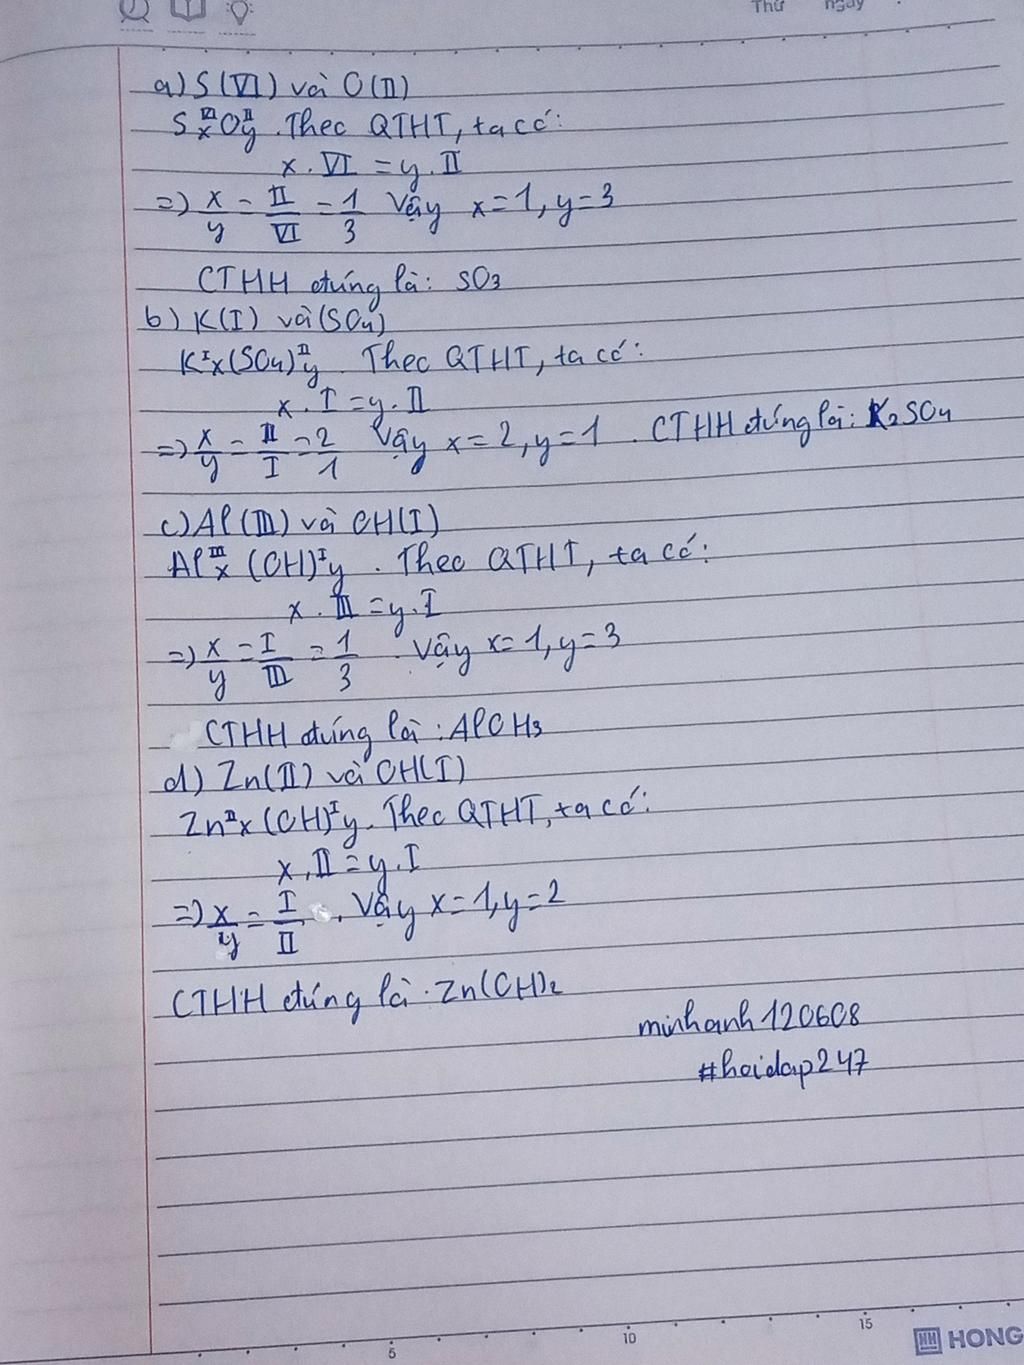 Thứ ngày
a) S(VI) và O(II)
SxᵛᴵOyᴵᴵ. Theo QTHT, ta có:
x. VI = y. II
=> x/y = II/VI = 1/3 Vậy x=1, y=3
CTHH đúng là: SO3
b) K(I) và (SO4)
Kᴵx(SO4)ᴵᴵy. Theo QTHT, ta có:
x. I = y. II
=> x/y = II/I = 2/1 Vậy x=2, y=1. CTHH đúng là: K2SO4
c) Al(III) và OH(I)
Alᴵᴵᴵx (OH)ᴵy. Theo QTHT, ta có:
x. III = y. I
=> x/y = I/III = 1/3. Vậy x=1, y=3
CTHH đúng là: AlOH3
d) Zn(II) và OH(I)
Znᴵᴵx (OH)ᴵy. Theo QTHT, ta có:
x. II = y. I
=> x/y = I/II. Vậy x=1, y=2
CTHH đúng là: Zn(OH)2
minhanh120608
#hoidap247
5 10 15
HH HONG